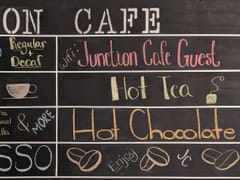 ON CAFE
Regular + Decaf
Wifi: Junction Cafe Guest
Hot Tea
& MORE
Hot Chocolate
SSO Enjoy